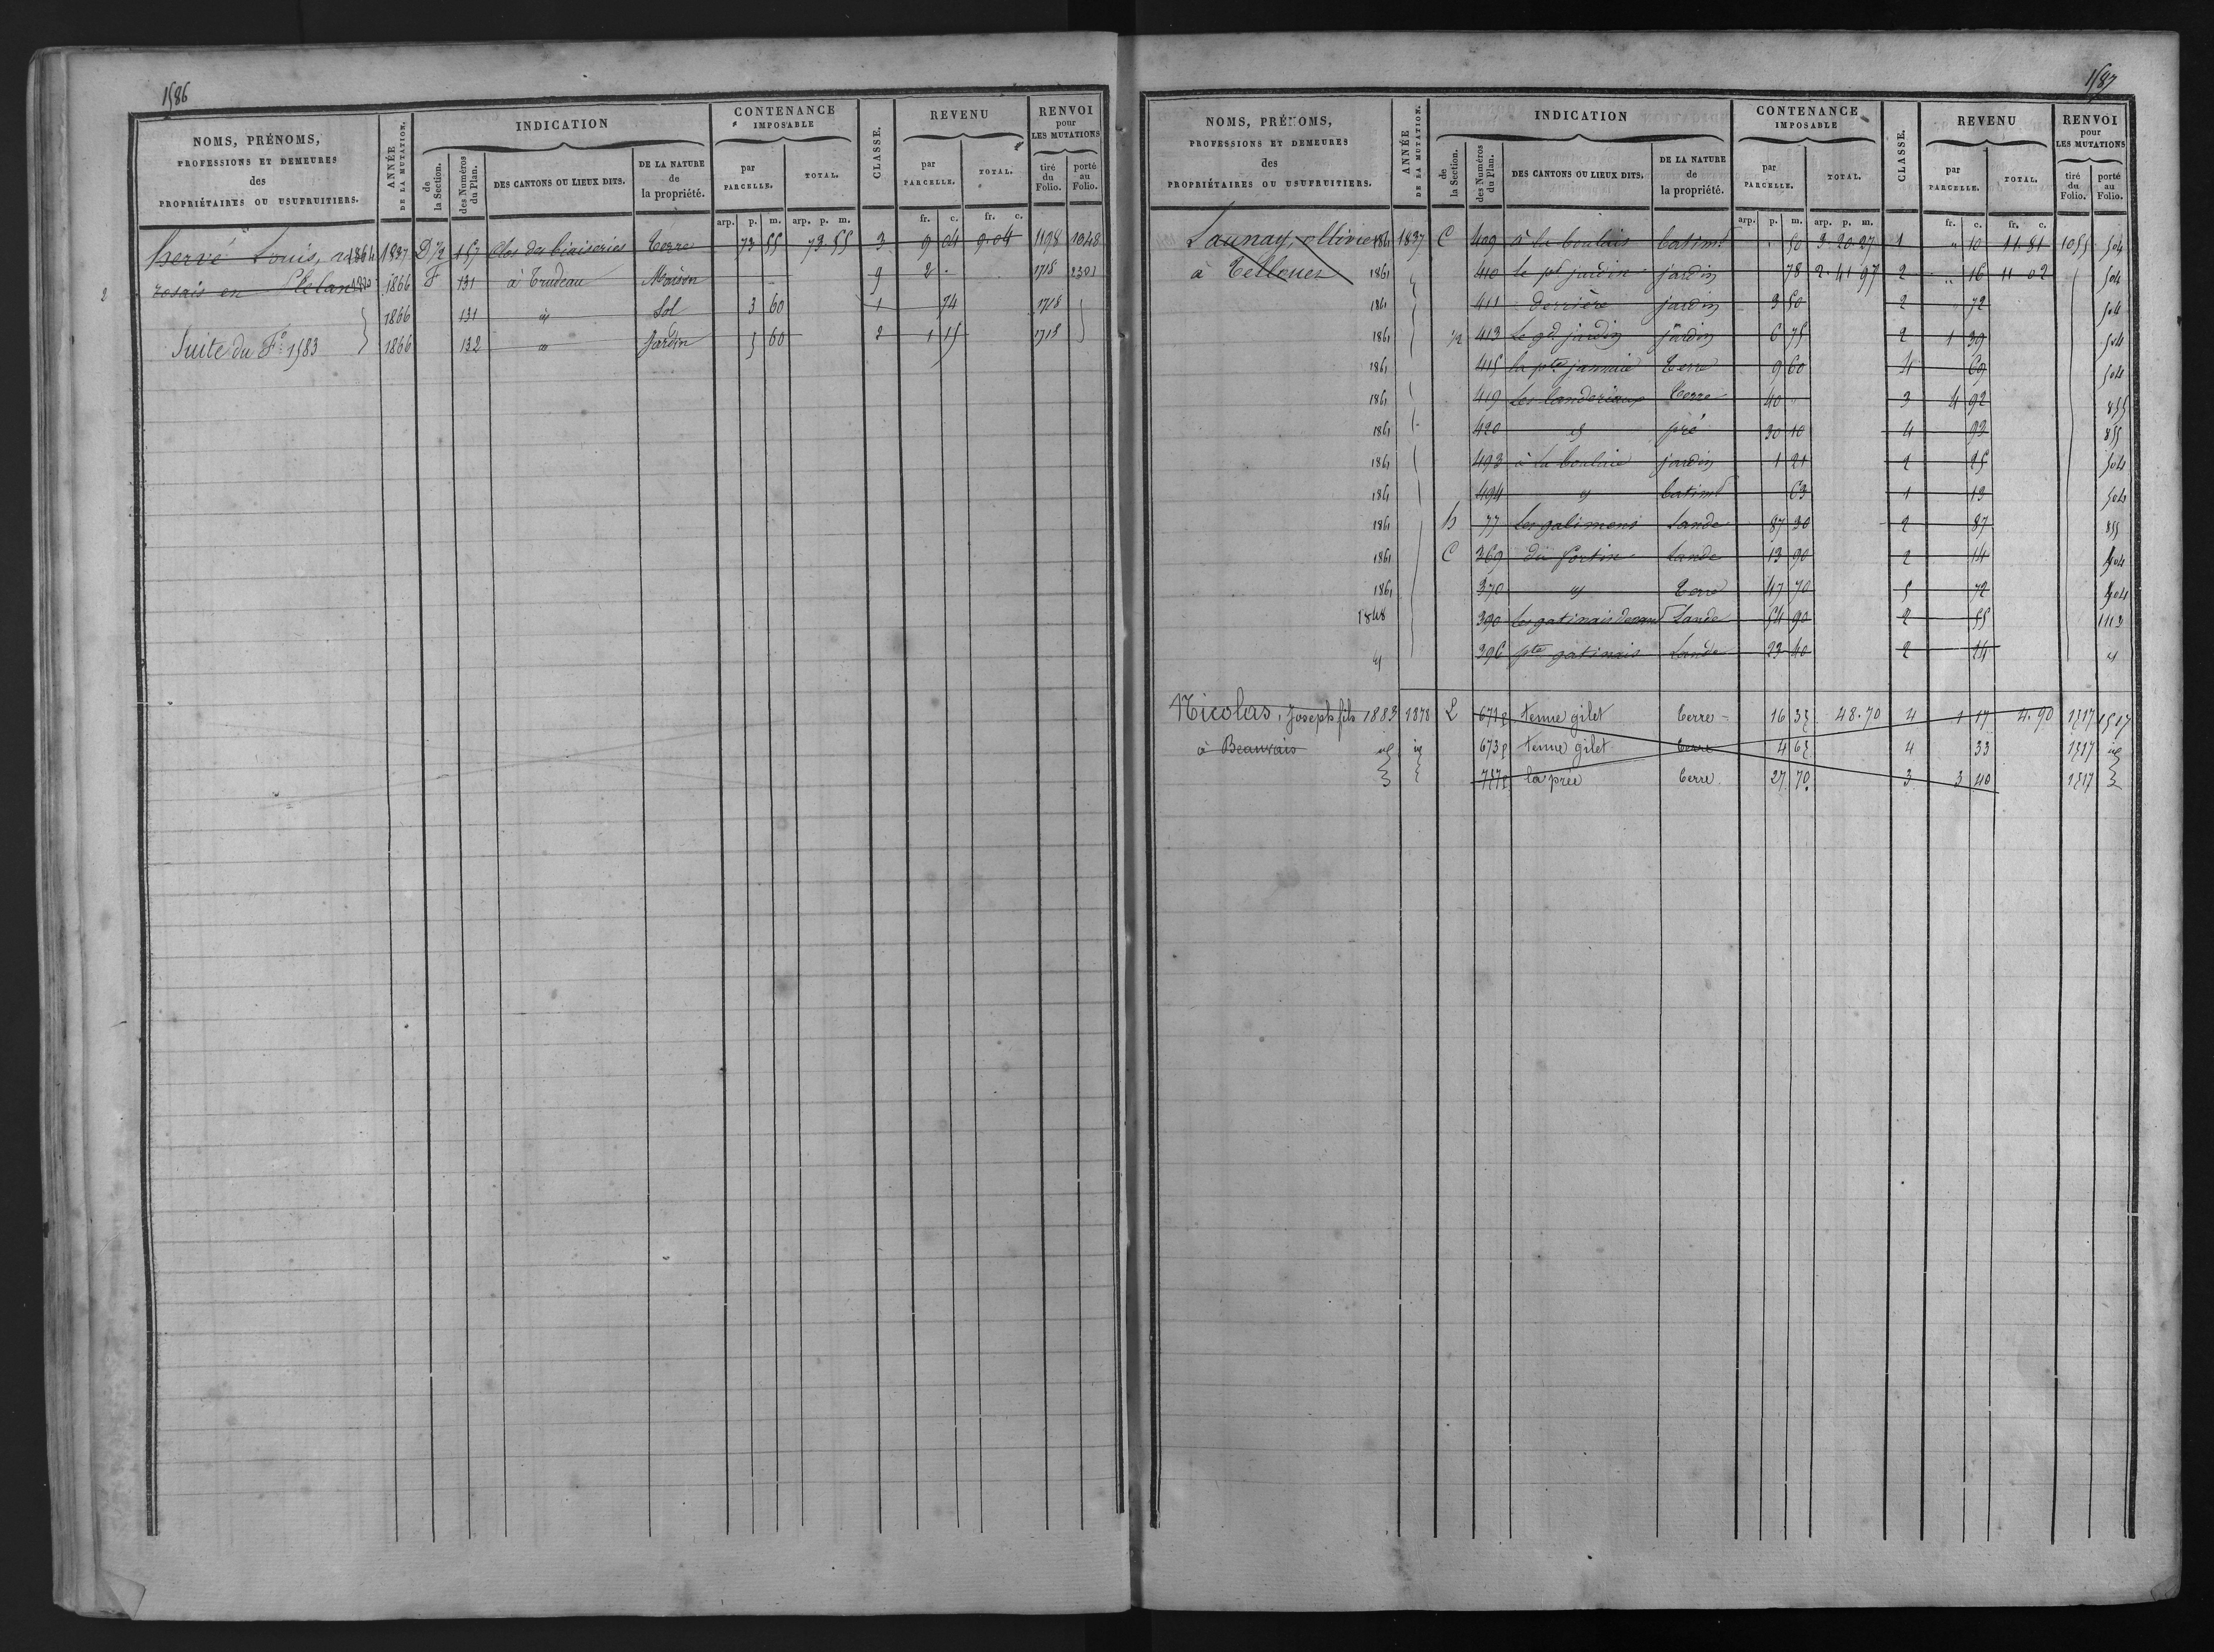 1586
NOMS, PRÉNOMS, PROFESSIONS ET DEMEURES des PROPRIÉTAIRES OU USUFRUITIERS.
ANNÉE DE LA MUTATION.
INDICATION
de la Section.
des Numéros du Plan.
DES CANTONS OU LIEUX DITS.
DE LA NATURE de la propriété.
CONTENANCE IMPOSABLE
par PARCELLE.
TOTAL.
CLASSE.
REVENU
par PARCELLE.
TOTAL.
RENVOI pour LES MUTATIONS
tiré du Folio.
porté au Folio.
arp. p. m. arp. p. m. fr. c. fr. c.
hervé Louis, 1864 1837 D 157 Clos des biaiseries Terre 73 55 73.55 3 9 04 9.04 1198 1048
rosais en Plelan 1866 F 131 à Trudeau Maison 9 2 . 1718 2301
2
1866 131 id Sol 3 60 1 74 1718
Suite du F° 1583 1866 132 id Jardin 5 60 2 1 15 1718
1587
NOMS, PRÉNOMS, PROFESSIONS ET DEMEURES des PROPRIÉTAIRES OU USUFRUITIERS.
ANNÉE DE LA MUTATION.
INDICATION
de la Section.
des Numéros du Plan.
DES CANTONS OU LIEUX DITS.
DE LA NATURE de la propriété.
CONTENANCE IMPOSABLE
par PARCELLE.
TOTAL.
CLASSE.
REVENU
par PARCELLE.
TOTAL.
RENVOI pour LES MUTATIONS
tiré du Folio.
porté au Folio.
arp. p. m. arp. p. m. fr. c. fr. c.
Launay, ollivier 1861 1837 C 409 à la boulais batimt 50 3.20.27 1 " 10 11.81 1055 504
à Tellouer 1861 410 le pt jardin jardin 78 2.41.97 2 " 16 11 02 504
1861 411 Derrière jardin 3 50 2 72 504
1861 413 Le gd jardin jardin 6 75 2 1 39 504
1861 415 la pte jannaie Terre 9 60 4 69 504
1861 419 Les landeriaux Terre 40 3 4 92 855
1861 420 id pré 30 10 4 93 855
1861 493 à la boulais jardin 1 21 2 25 504
1861 494 id batimt 63 1 13 504
1861 h 77 Les galimons Lande 87 30 2 87 855
1861 C 369 du fortin Lande 13 90 2 14 504
1861 370 id Terre 47 70 5 72 504
1848 390 les gatinais Lande 54 90 2 55 1112
id 396 pte gatinais Lande 23 40 2 24 id
Nicolas, Joseph fils 1883 1878 L 671p tenue gilet terre 16 35 48.70 4 1 17 4.90 1517 1507
à Beauvais id id 673p tenue gilet terre 4 65 4 33 1517 id
757p la prée terre 27 70 3 3 40 1517